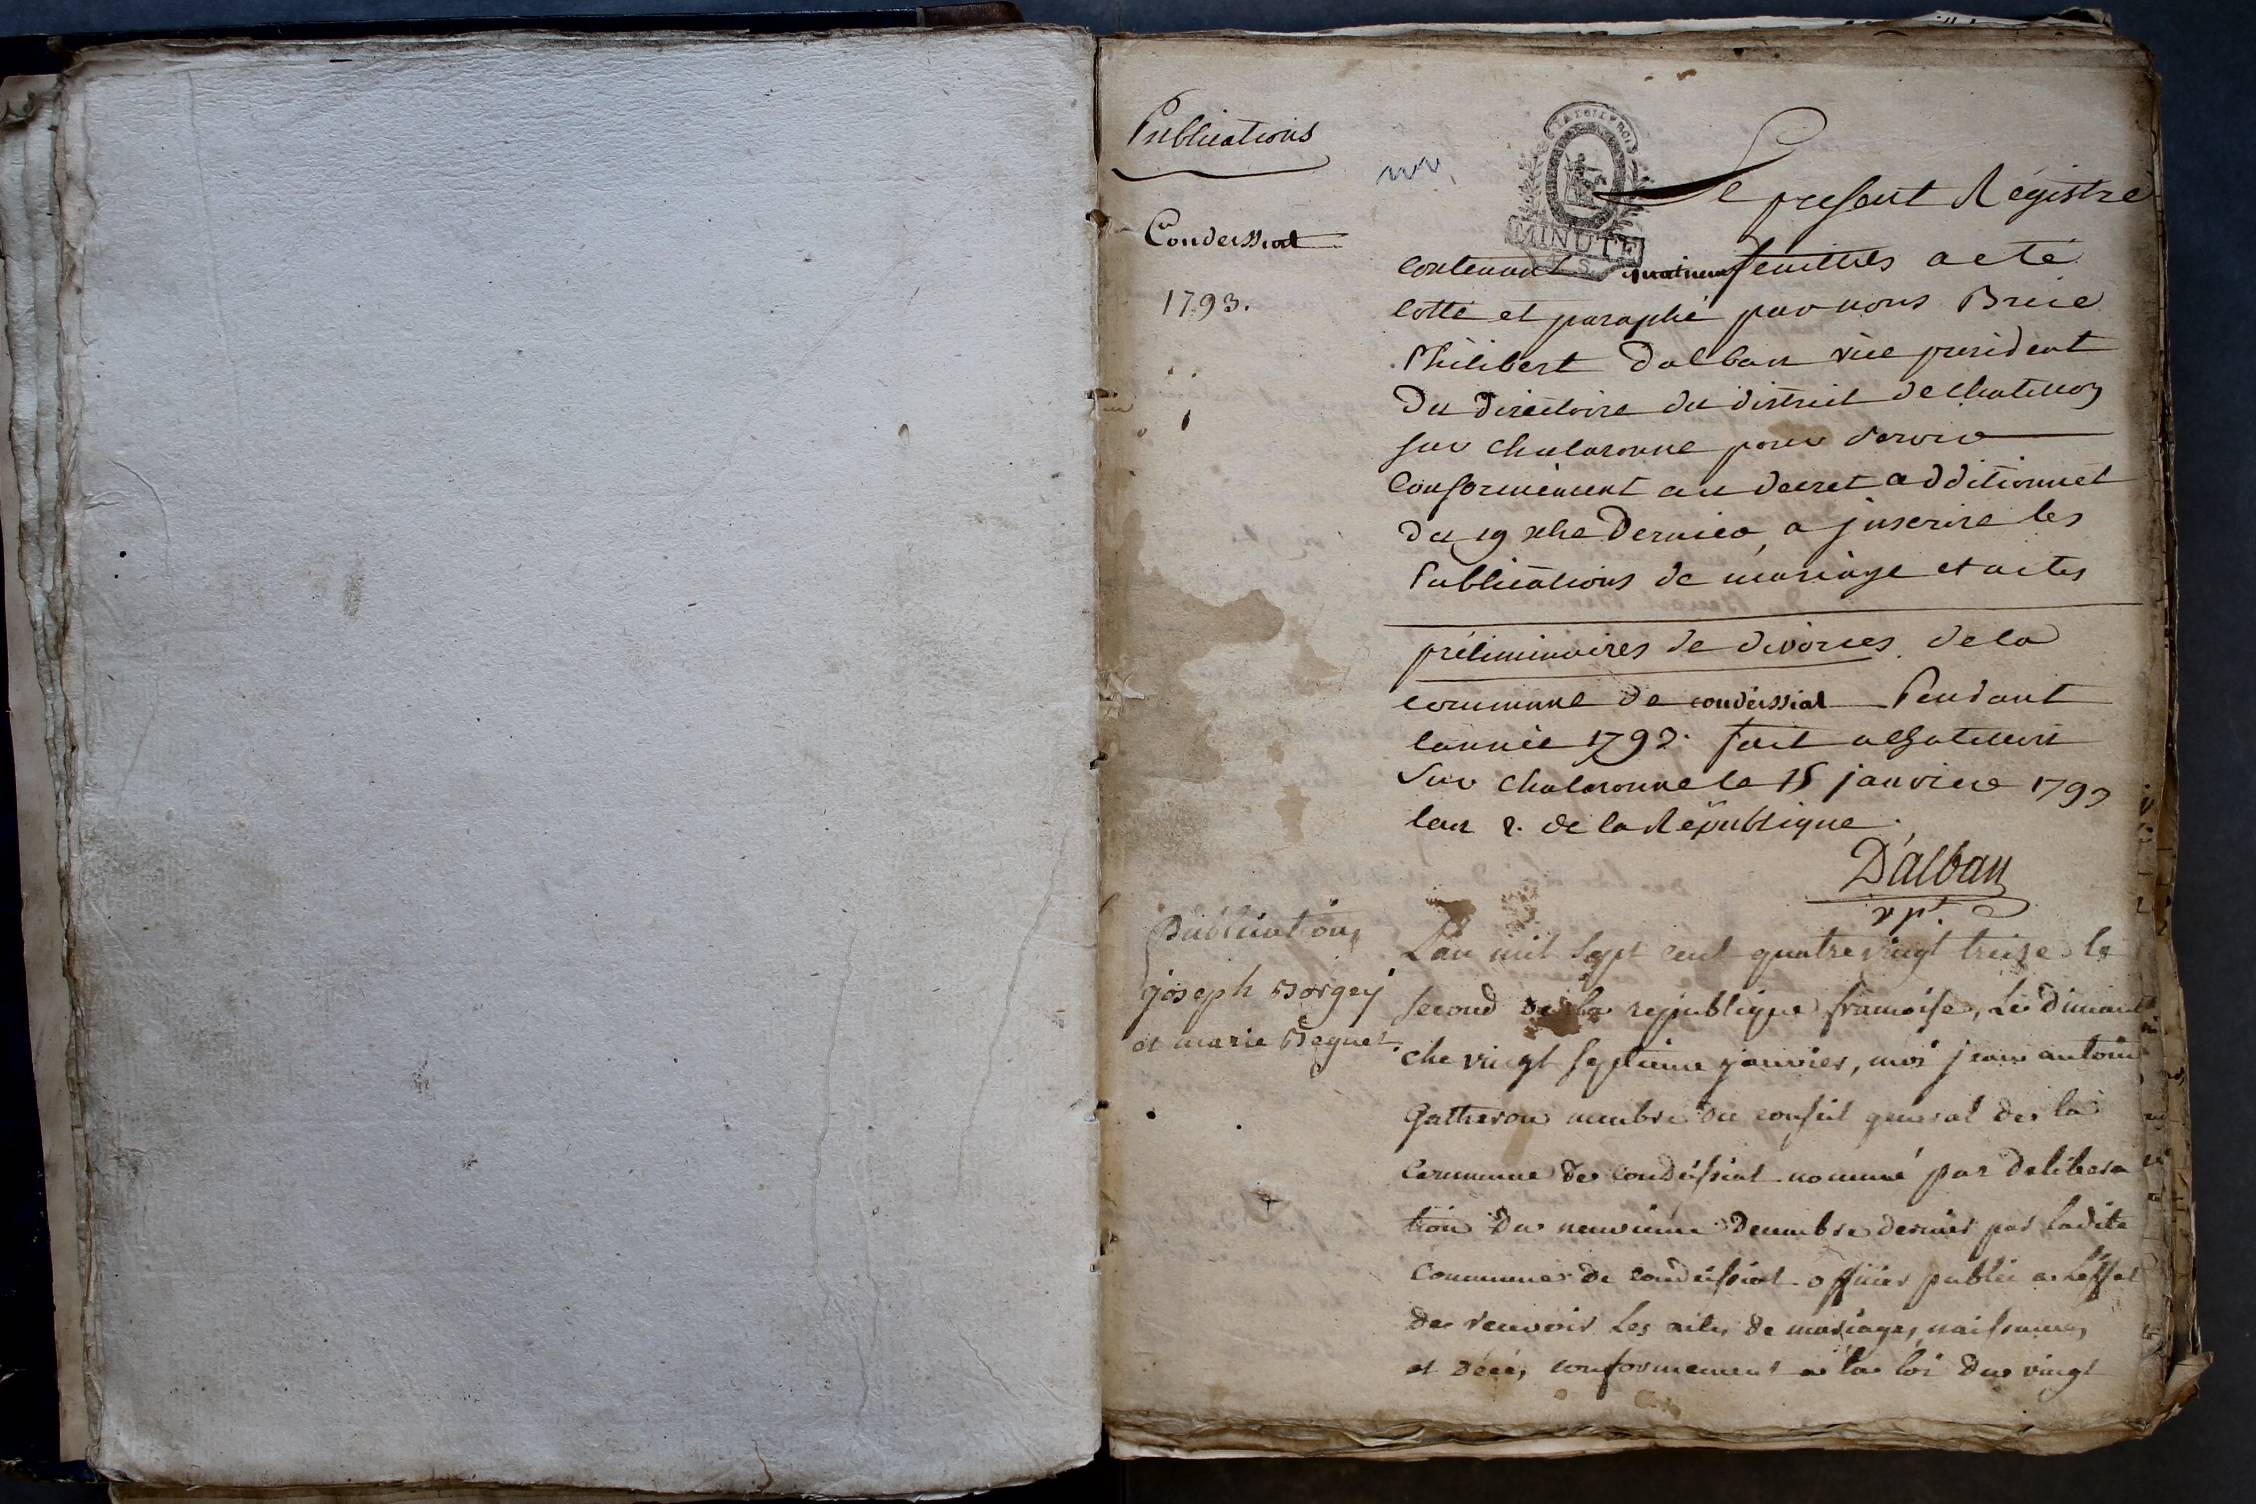 Publications
Condeissiat
1793.
LA LOI LE ROI
MINUTE
Le present Régistre
contenant quatre feuilles a eté
cotté et paraphé par nous Brice
Philibert Dalban vice president
du directoire du district de chatillon
sur chalaronne pour servir
conformément au decret additionnel
du 19 xbre dernier, a inscrire les
Publications de mariage et actes
préliminaires de divorces de la
commune de condeissiat Pendant
lannée 1793. fait a chatillon
sur chalaronne le 15 janvier 1793
lan 2. de la République.
D'alban
vpt.
Publication
joseph Borgey
et marie Beguet
L'an mil sept cent quatre vingt treize le
second de la republique françoise, Le diman
che vingt septieme janvier, moi jean antoine
Gatheron membre du conseil general de la
commune de condeissiat nommé par delibera
tion du neuvieme decembre dernier par ladite
commune de condeissiat officier public a L'effet
de recevoir Les actes de mariages, naissances
et décé, conformement a la loi du vingt